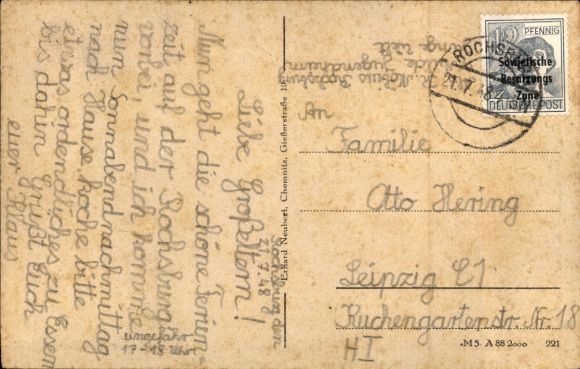 Rochsburg den
21.7.48
Liebe Großeltern!
Nun geht die schöne Ferien-
zeit auf der Rochsburg
vorbei und ich komme
nun Sonnabendnachmittag
ungefähr
17-18 Uhr
nach Hause koche bitte
etwas ordendliches zu Essen
bis dahin Grüßt Euch
euer Klaus
Erhard Neubert, Chemnitz, Gießerstraße
12 PFENNIG
Sowjetische
Besatzungs
Zone
DEUTSCHE POST
ROCHSBURG
21.7.48
Rochsburg
An
Familie
Otto Hering
Leipzig C1
Kuchengartenstr. Nr. 18
H I
M 5 A 88 2000 221